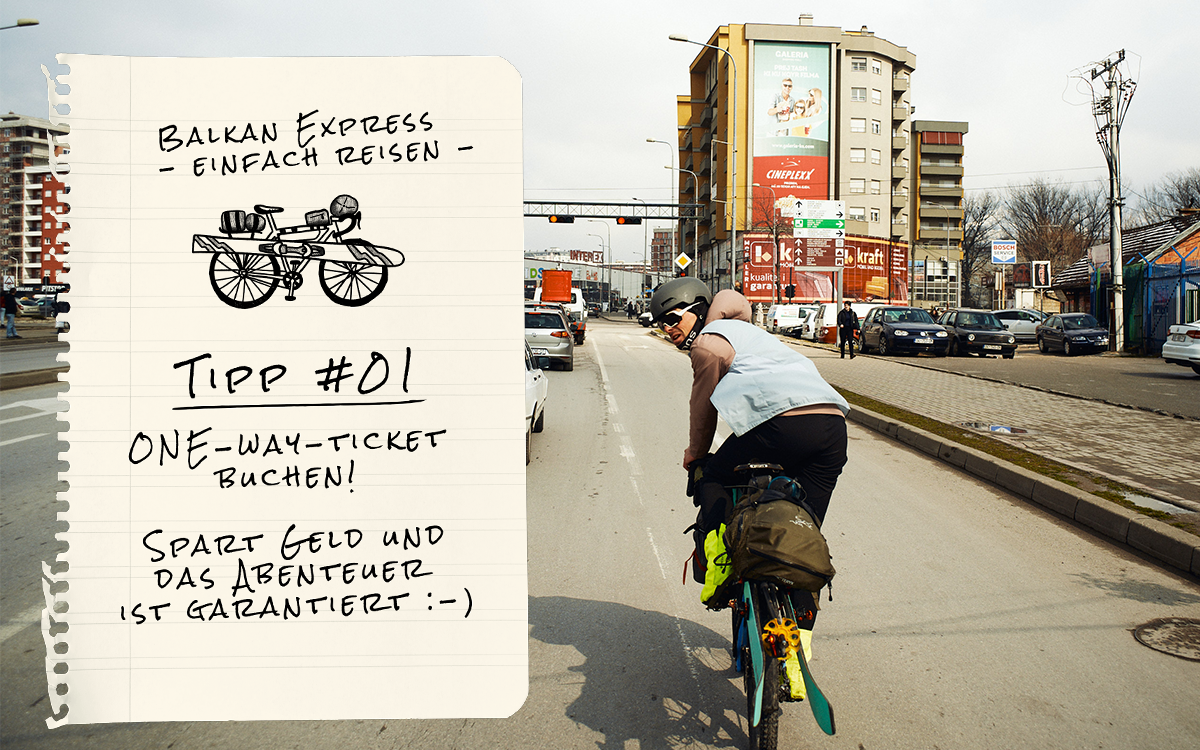 BALKAN EXPRESS
- EINFACH REISEN -
TIPP #01
ONE-WAY-TICKET
BUCHEN!
SPART GELD UND
DAS ABENTEUER
IST GARANTIERT :-)
GALERIA
CINEPLEXX
kraft
BOSCH
SERVICE